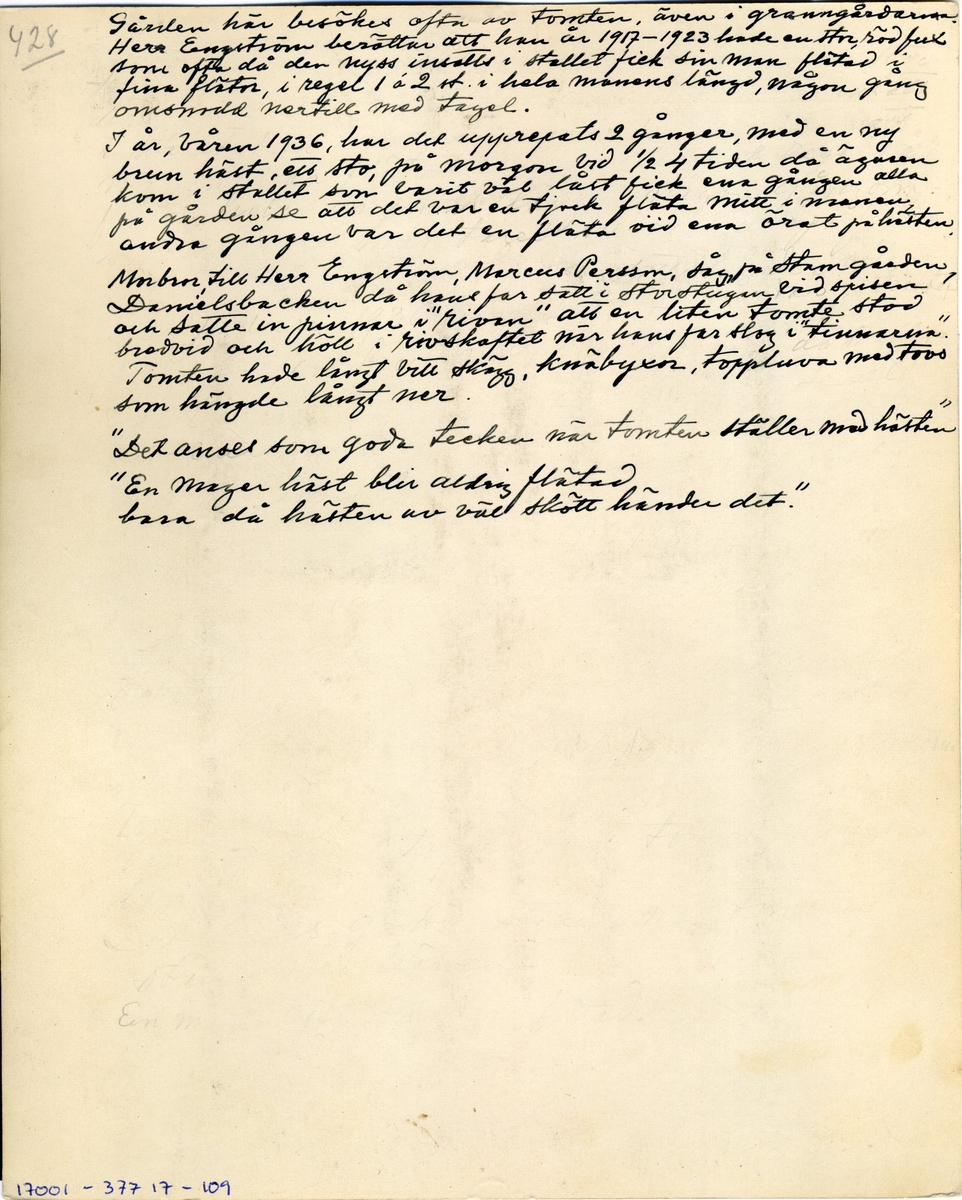 428
Gården här besökes ofta av tomten, även i granngårdarna.
Herr Engström berättar att han år 1917-1923 hade en stor, röd fux
som ofta då den nyss insatts i stallet fick sin man flätad i
fina flätor, i regel 1 á 2 st. i hela manens längd, någon gång
omsnodd nertill med tagel.
I år, våren 1936, har det upprepats 2 gånger, med en ny
brun häst, ett sto, på morgon vid 1/2 4 tiden då ägaren
kom i stallet som varit väl låst fick ena gången alla
på gården se att det var en tjock fläta mitt i manen,
andra gången var det en fläta vid ena örat på hästen.
Morbror, till Herr Engström, Marcus Persson, såg på Stamgården,
Danielsbacken då hans far satt i storstugan vid spisen
och satte in pinnar i "rivan" att en liten tomte stod
bredvid och höll i rivskaftet när hans far slog i "tinnarna".
Tomten hade långt vitt skägg, knäbyxor, toppluva med tovs
som hängde långt ner.
"Det anses som goda tecken när tomten ställer med hästen"
"En mager häst blir aldrig flätad
bara då hästen av väl skött händer det."
En m
17001 - 377 17 - 109